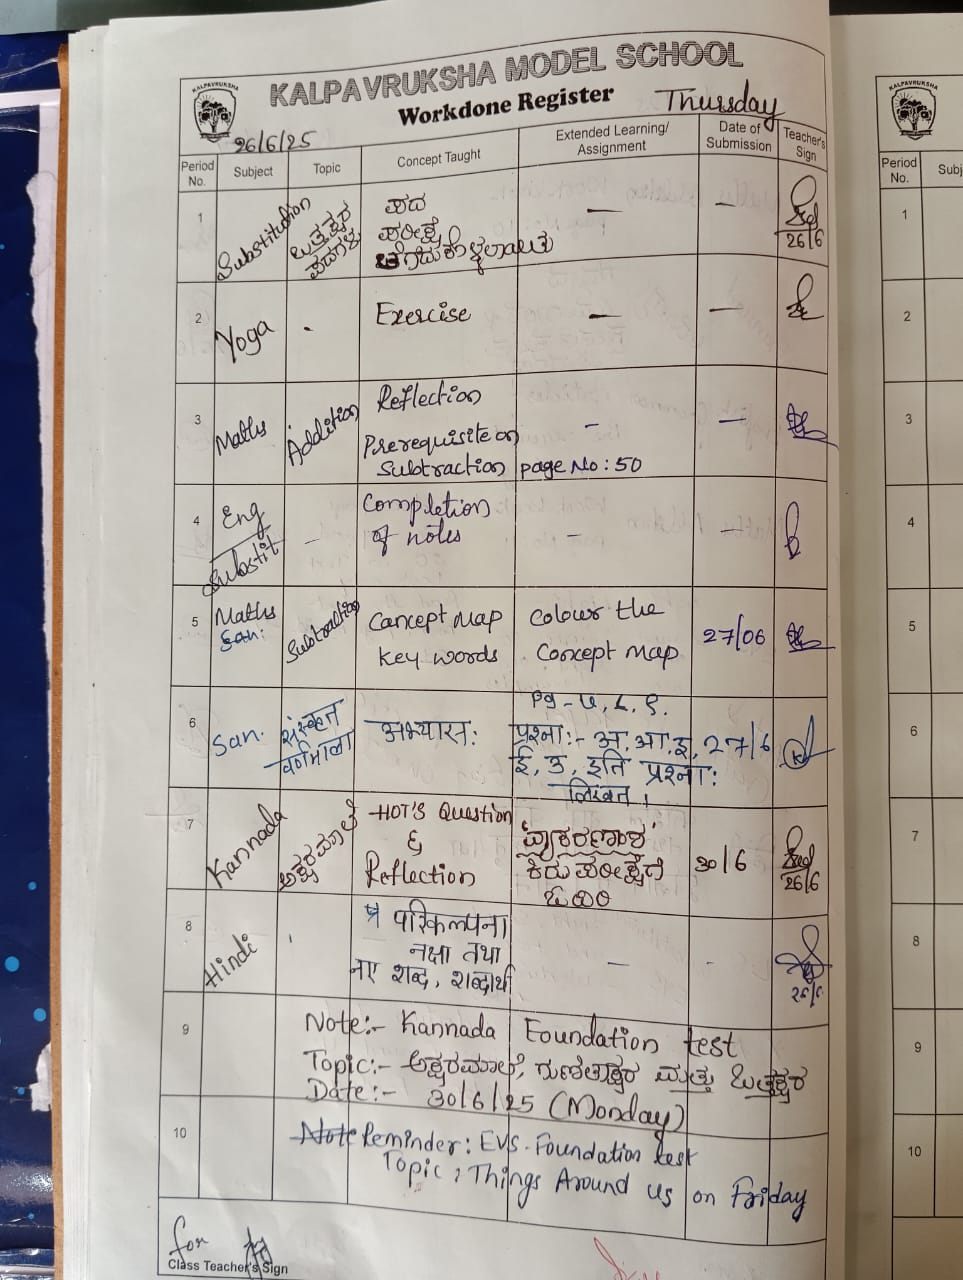 KALPAVRUKSHA
KALPAVRUKSHA MODEL SCHOOL
Workdone Register
Thursday
26/6/25
Period No. Subject Topic Concept Taught Extended Learning/ Assignment Date of Submission Teacher's Sign
1 Substitution ಒತ್ತಕ್ಷರ ಪದಗಳು ಪದ — —
ಪರೀಕ್ಷೆ
26/6
2 Yoga . Exercise — —
3 Maths Addition Reflection - —
Prerequisite on
Subtraction page No: 50
4 Eng Completion - -
Substit - of notes
5 Maths Subtraction Concept Map Colour the 27/06
San: Key words Concept Map
Pg - ७, ८, ९.
6 San. संस्कृत वर्णमाला अभ्यासः प्रश्नाः- अ, आ, इ, 27/6
ई, उ, इति प्रश्नाः
लिखत ।
7 Kannada ಅಕ್ಷರಮಾಲೆ HOT'S Question
& 30/6
Reflection ಕಿರು ಪರೀಕ್ಷೆಗೆ
ಓದಿರಿ
26/6
8 Hindi परिकल्पना
नक्षा तथा — -
नए शब्द, शब्दार्थ
26/6
9 Note:- Kannada Foundation test
Topic:- ಅಕ್ಷರಮಾಲೆ, ಗುಣಿತಾಕ್ಷರ ಮತ್ತು ಒತ್ತಕ್ಷರ
Date:- 30/6/25 (Monday)
10 Note Reminder: EVS. Foundation test
Topic: Things Around us on Friday
for
Class Teacher's Sign
KALPAVRUKSHA
Period No. Subj
1
2
3
4
5
6
7
8
9
10